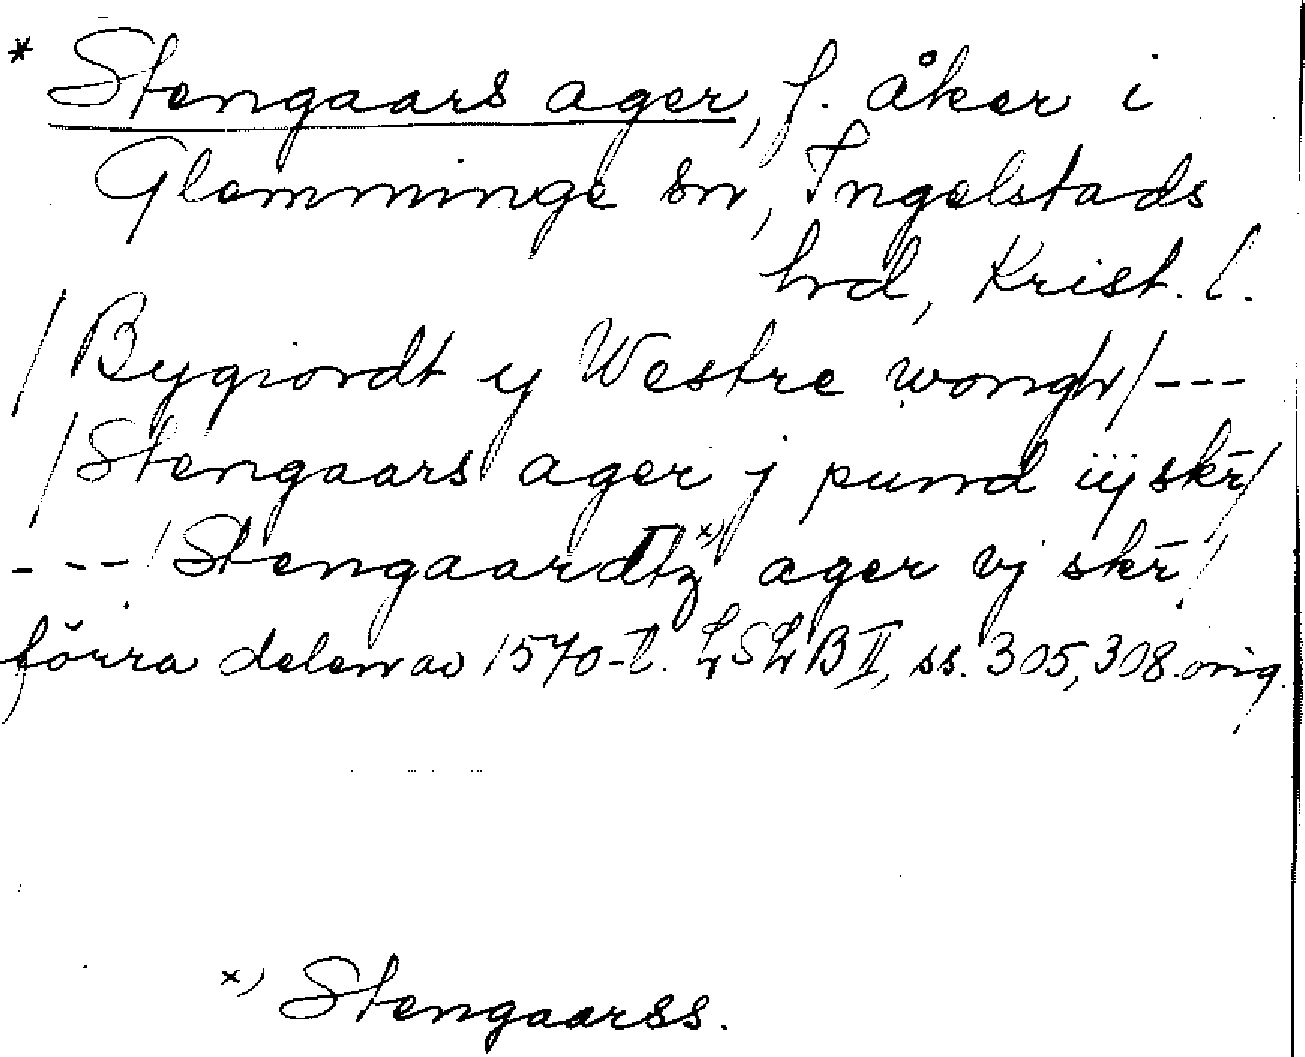 * Stengaars ager, f. åker i
Glemminge sn, Ingelstads
hd, Krist. l.
/Bygiordt y Westre wongh/---
/Stengaars ager j pund iij skr̄/
---/Stengaardtz x) ager vj skr̄/
förra delen av 1570-t. LSLB II, ss. 305, 308. orig.
x) Stengaarss.